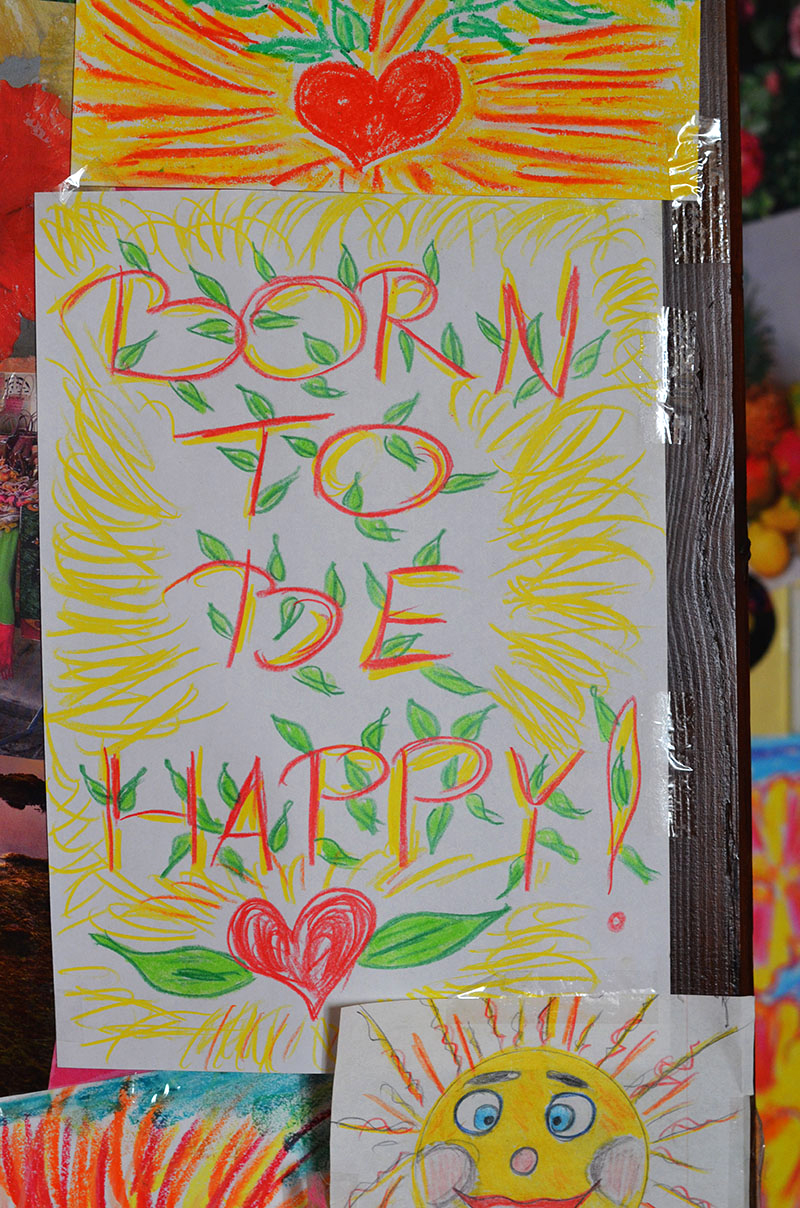 BORN
TO
BE
HAPPY!